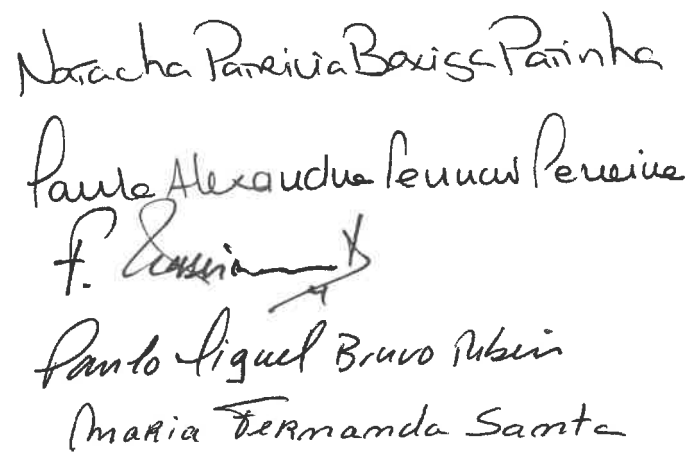 Natacha Patricia Bexiga Patinha
Paula Alexandra Pereira
F.
Paulo Miguel Bruno Ribeiro
Maria Fernanda Santa